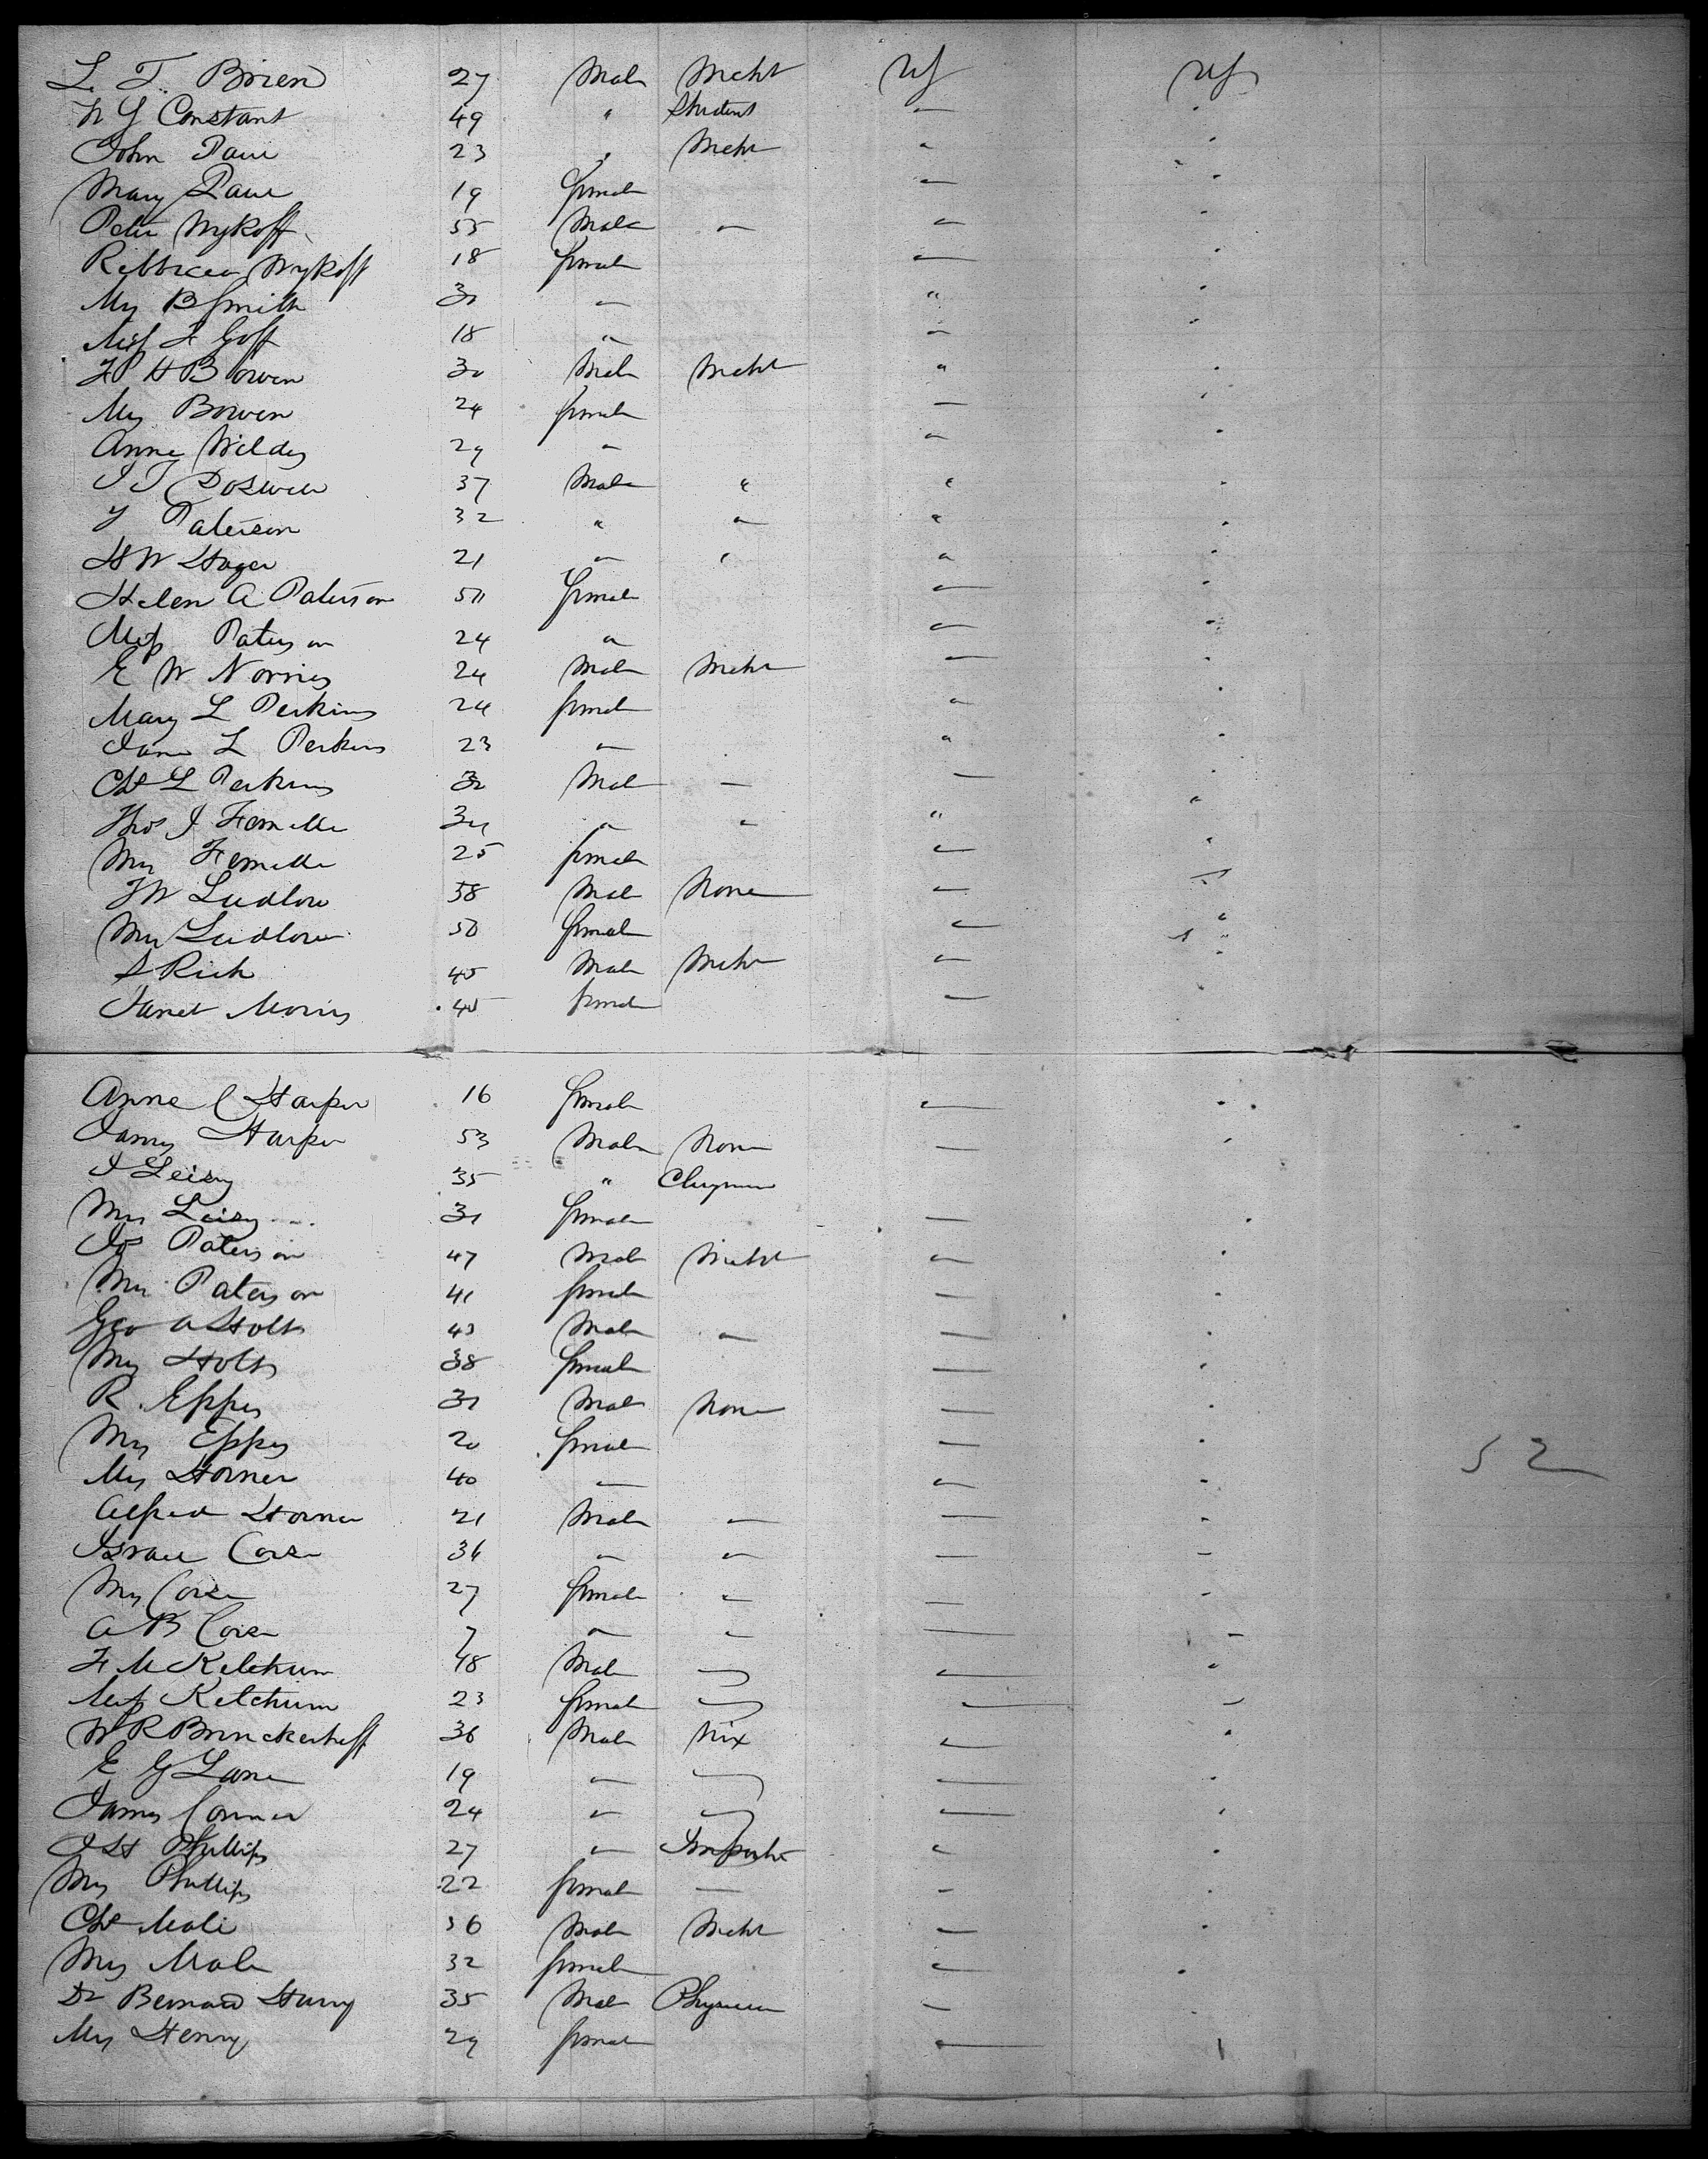 L. T. Brien 27 Male Mcht US US
W G Constant 49 " Student " "
John Paul 23 " Mcht " "
Mary Paul 19 female " "
Peter Wykoff 55 Male " " "
Rebbecca Wykoff 18 female " "
Mrs B Smith 30 " " "
Miss F Goff 18 " " "
F P H Bowen 30 Male Mcht " "
Mrs Bowen 24 female " "
Anne Wildes 29 " " "
J T Doswell 37 Male " " "
J Paterson 32 " " " "
H W Hager 21 " " " "
Helen A Paterson 50 female " "
Miss Paterson 24 " " "
E W Norris 24 Male Mcht " "
Mary L Perkins 24 female " "
Jane L Perkins 23 " " "
Chs L Perkins 32 Male " " "
Thos J 34 " " " "
Mrs 25 female " "
J W Ludlow 58 Male None " "
Mrs Ludlow 50 female " "
S Rich 45 Male Mcht " "
Janet Morris 45 female " "
Anne C Harper 16 female " "
James Harper 53 Male None " "
J Leisy 35 " Clergyman
Mrs Leisy 31 female " "
Jos Paterson 47 Male Mcht " "
Mrs Paterson 41 female " "
Geo A Holt 43 Male " " "
Mrs Holt 38 female " "
R. Eppes 31 Male None " "
Mrs Eppes 20 female " "
52
Mrs Horner 40 " " "
Alfred Horner 21 Male " " "
Israel Corse 36 " " " "
Mrs Corse 27 female " " "
A B Corse 7 " " " "
F M Ketchum 48 Male " " "
Miss Ketchum 23 female " " "
W R Brinckerhoff 36 Male Nix " "
E G Lane 19 " " " "
James Connor 24 " " " "
J H Phillips 27 " Importer " "
Mrs Phillips 22 female " " "
Chs Mali 36 Male Mcht " "
Mrs Mali 32 female " "
Dr Bernard Henry 35 Male Physician " "
Mrs Henry 29 female " "